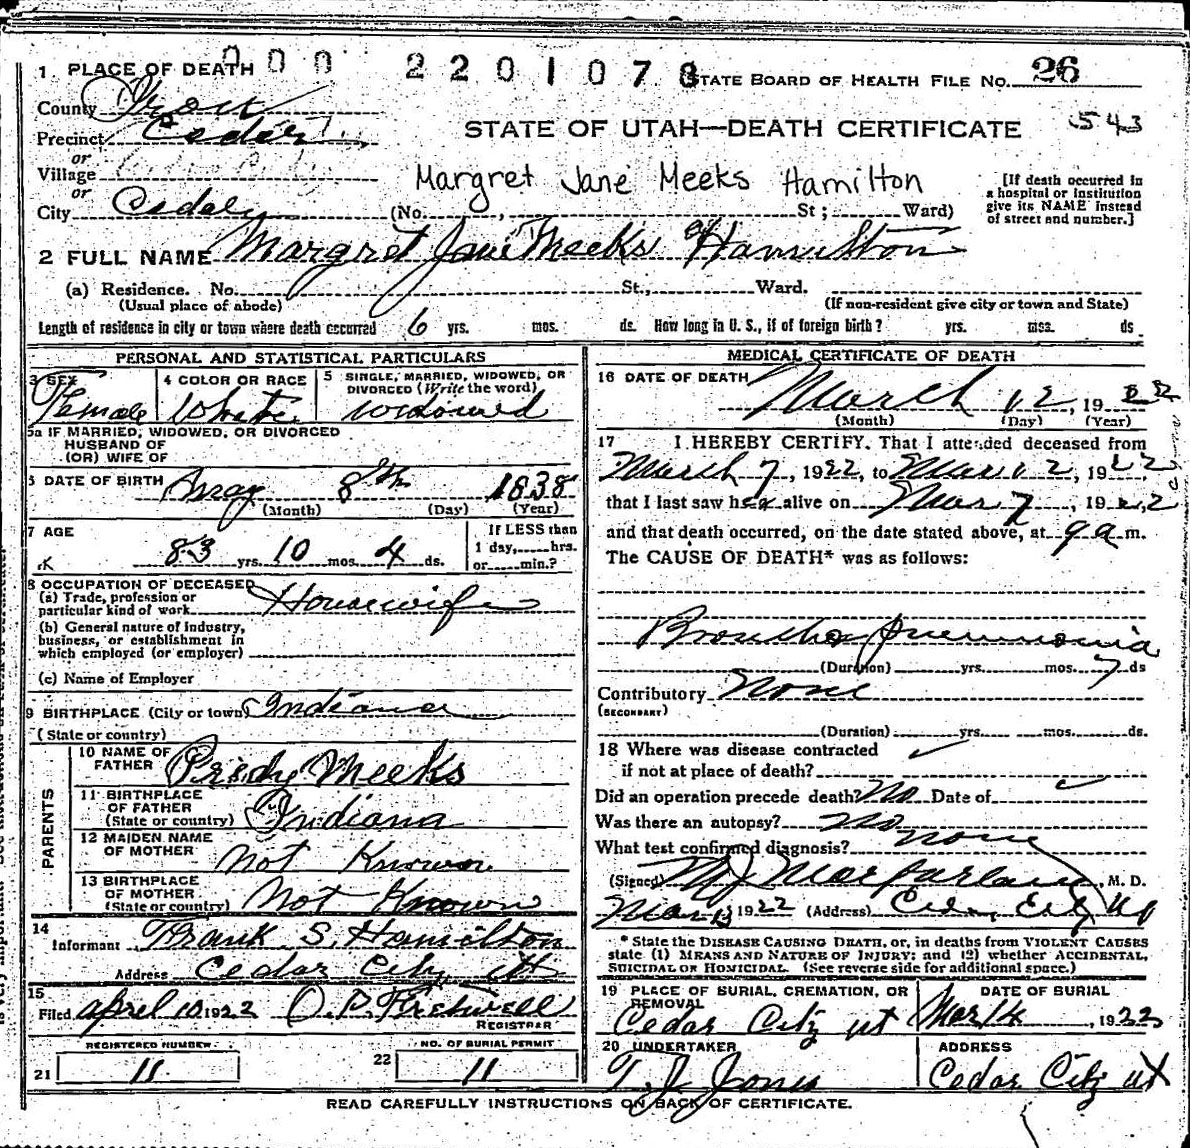 0 0 0 2 2 0 1 0 7 8 STATE BOARD OF HEALTH FILE NO. 26
1 PLACE OF DEATH
County Iron
STATE OF UTAH—DEATH CERTIFICATE 543
Precinct Cedar
or
Village
or
Margret Jane Meeks Hamilton
[If death occurred in a hospital or institution give its NAME instead of street and number.]
City Cedar (No. , St; Ward)
2 FULL NAME Margret Jane Meeks Hamilton
(a) Residence. No. St., Ward.
(Usual place of abode) (If non-resident give city or town and State)
Length of residence in city or town where death occurred 6 yrs. mos. ds. How long in U. S., if of foreign birth? yrs. mos. ds
PERSONAL AND STATISTICAL PARTICULARS
3 SEX Female
4 COLOR OR RACE White
5 SINGLE, MARRIED, WIDOWED, OR DIVORCED (Write the word) Widowed
5a IF MARRIED, WIDOWED, OR DIVORCED
HUSBAND OF
(OR) WIFE OF
6 DATE OF BIRTH May 8th 1838
(Month) (Day) (Year)
7 AGE 83 yrs. 10 mos. 4 ds.
If LESS than 1 day,......hrs. or......min.?
8 OCCUPATION OF DECEASED
(a) Trade, profession or particular kind of work Housewife
(b) General nature of industry, business, or establishment in which employed (or employer)
(c) Name of Employer
9 BIRTHPLACE (City or town) Indiana
(State or country)
PARENTS
10 NAME OF FATHER Pridy Meeks
11 BIRTHPLACE OF FATHER (State or country) Indiana
12 MAIDEN NAME OF MOTHER Not Known
13 BIRTHPLACE OF MOTHER (State or country) Not Known
14 Informant Frank S. Hamilton
Address Cedar City Ut
15 Filed April 10 1922
REGISTRAR
REGISTERED NUMBER
21 11
NO. OF BURIAL PERMIT
22 11
MEDICAL CERTIFICATE OF DEATH
16 DATE OF DEATH March 12, 1922
(Month) (Day) (Year)
17 I HEREBY CERTIFY. That I attended deceased from
March 7, 1922, to Mar 12, 1922
that I last saw her alive on Mar 7, 1922
and that death occurred, on the date stated above, at 9 a m.
The CAUSE OF DEATH* was as follows:
Broncho pneumonia
(Duration) yrs. mos. 7 ds
Contributory None
(SECONDARY)
(Duration) yrs. mos. ds.
18 Where was disease contracted
if not at place of death?
Did an operation precede death? No Date of
Was there an autopsy? No
What test confirmed diagnosis? none
(Signed) M J Macfarlane, M. D.
Mar 13 1922 (Address) Cedar City Ut
* State the DISEASE CAUSING DEATH, or, in deaths from VIOLENT CAUSES
state (1) MEANS AND NATURE OF INJURY; and (2) whether ACCIDENTAL,
SUICIDAL OR HOMICIDAL. (See reverse side for additional space.)
19 PLACE OF BURIAL, CREMATION, OR REMOVAL Cedar City ut
DATE OF BURIAL Mar 14, 1922
20 UNDERTAKER T. J. Jones
ADDRESS Cedar City ut
READ CAREFULLY INSTRUCTIONS ON BACK OF CERTIFICATE.